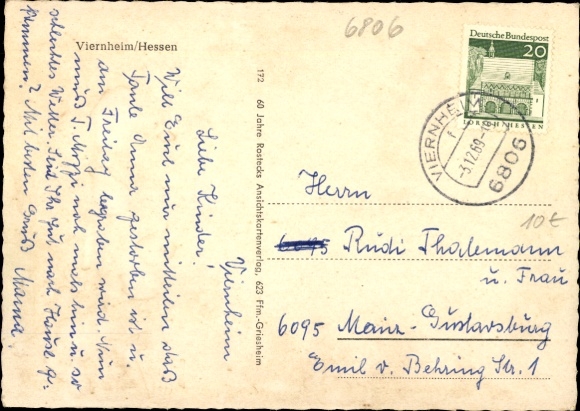 Viernheim/Hessen
6806
Deutsche Bundespost
20
LORSCH/HESSEN
VIERNHEIM
-3.12.69-
6806
172 60 Jahre Rostecks Ansichtskartenverlag, 623 Ffm.-Griesheim
Viernheim
Liebe Kinder!
Will Euch nur mitteilen daß
Tante Anna gestorben ist u.
am Freitag begraben wird.
muß T. noch mal u. so
schlechtes Wetter. Seid Ihr gut nach Hause ge-
kommen? Mit besten Gruß Mama.
Herrn
6095 Rudi Thalemann
u. Frau
6095 Mainz-Gustavsburg
Emil v. Behring Str. 1
10€